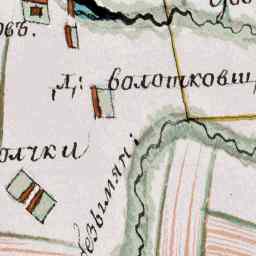 овъ.
д: волотковщ
олчки
безымян: